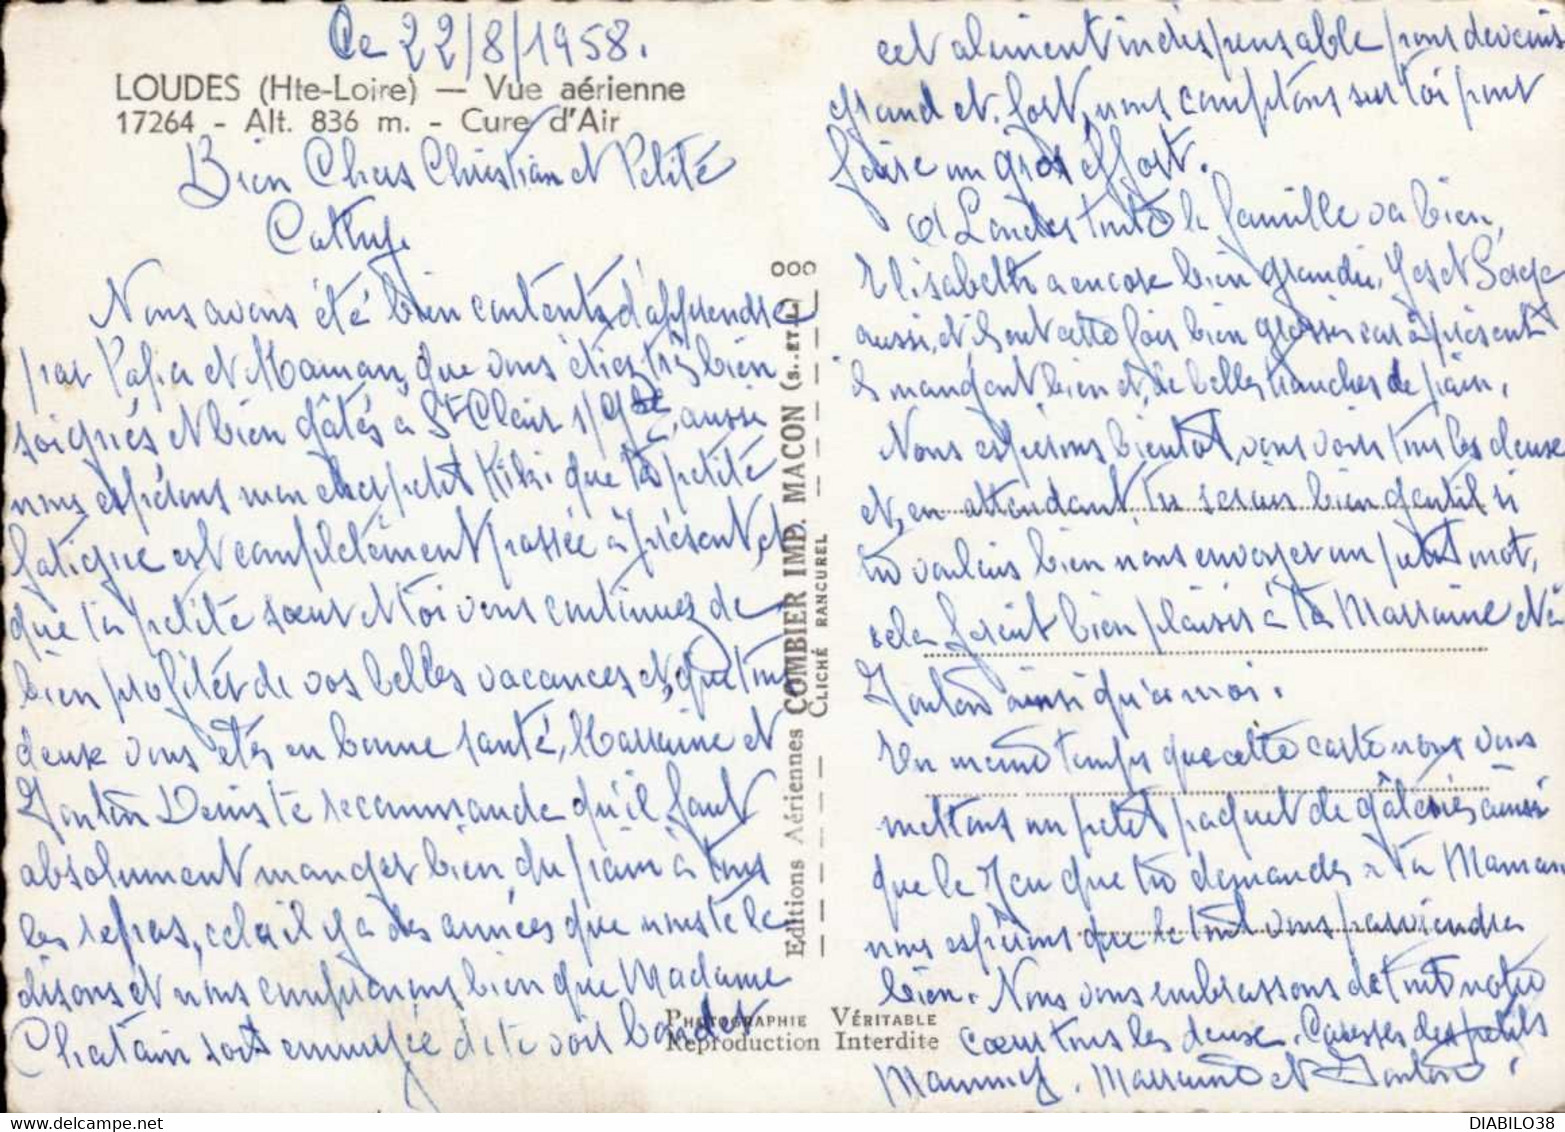 Le 22/8/1958.
LOUDES (Hte-Loire) — Vue aérienne
17264 - Alt. 836 m. - Cure d'Air
Bien Chers Christian et Petite
Cathy.
Nous avons été bien contents d'apprendre
par Papa et Maman, que vous étiez très bien
soignés et bien gâtés à St Clair s/, aussi
nous espérons mon cher petit Kiki que ta petite
fatigue est complètement passée à présent, et
que ta petite sœur et toi vous continuez de
bien profiter de vos belles vacances et, que tous
deux vous êtes en bonne santé, Marraine et
Tonton Denis te recommande qu'il faut
absolument manger bien du pain à tous
les repas, cela il y a des années que nous te le
disons et nous comprenons bien que Madame
Chatain soit ennuyée de te voir bouder
cet aliment indispensable pour devenir
grand et fort, nous comptons sur toi pour
faire un gros effort.
A Loudes toute la famille va bien,
Elisabeth a encore bien grandi, et Serge
aussi, et ils ont cette fois bien grossis car à présent
ils mangent bien et, de belles tranches de pain.
Nous espérons bientôt, vous voir tous les deux
et, en attendant, tu serais bien gentil si
tu voulais bien nous envoyer un petit mot,
cela ferait bien plaisir à ta Marraine et à
Tonton ainsi qu'à moi.
En même temps que cette carte nous vous
mettons un petit paquet de gâteries ainsi
que le Jeu que tu demandes à ta Maman
nous espérons que le tout vous parviendra
bien. Nous vous embrassons de tout notre
cœur tous les deux. Caresses des petits
Mammy. Marraine et Tonton.
000
Editions Aériennes COMBIER IMP. MACON (S.-ET-L.)
CLICHÉ RANCUREL
PHOTOGRAPHIE VÉRITABLE
Reproduction Interdite
DIABILO38